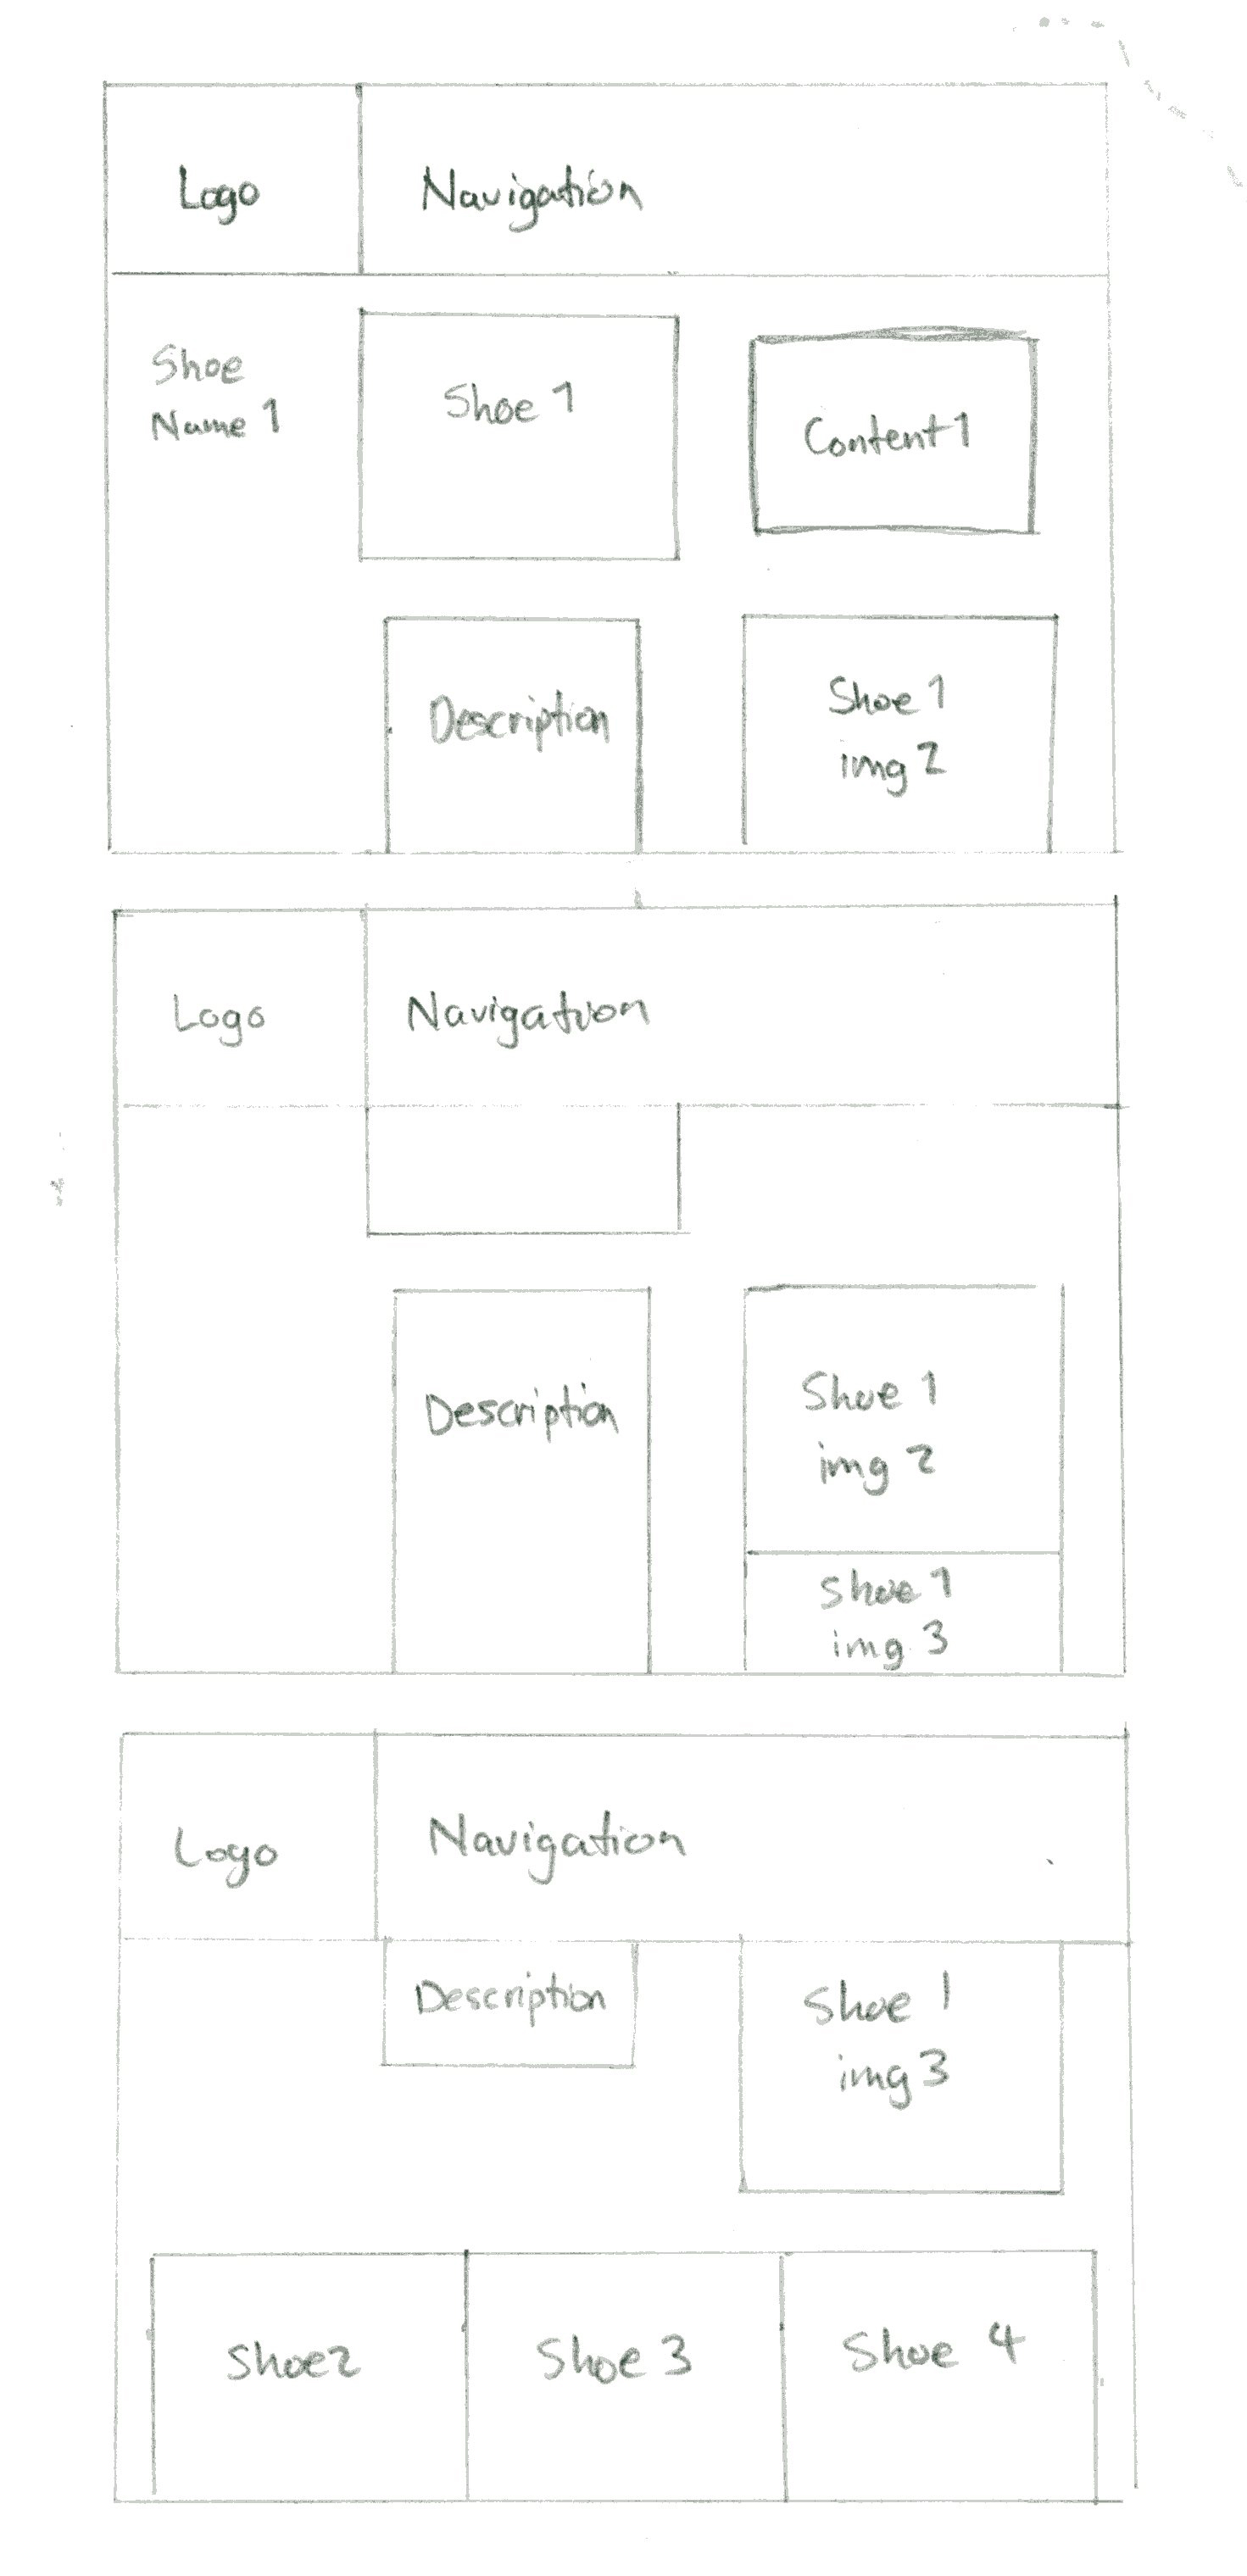 Logo
Navigation
Shoe
Name 1
Shoe 1
Content 1
Description
Shoe 1
img 2
Logo
Navigation
Description
Shoe 1
img 2
Shoe 1
img 3
Logo
Navigation
Description
Shoe 1
img 3
Shoe 2
Shoe 3
Shoe 4